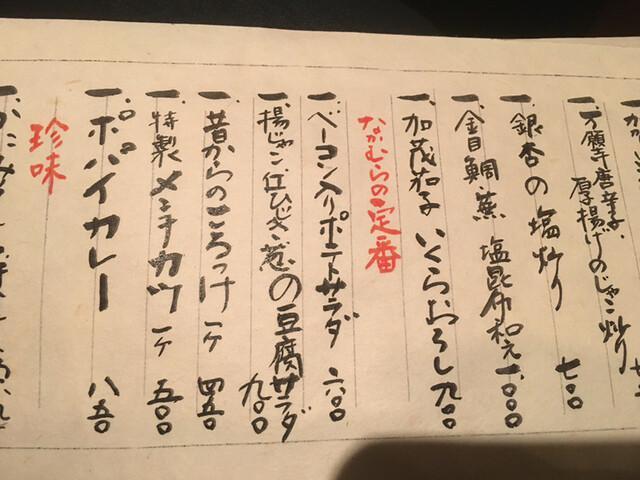 一、万願寺唐辛子、
厚揚げのじゃこ炒り 七〇〇
一、銀杏の塩炒り
一、金目鯛、蕪 塩昆布和え 一、〇〇〇
一、加茂茄子 いくらおろし 九〇〇
なかむらの定番
一、ベーコン入りポテトサラダ 六〇〇
一、揚じゃこ、ひじき、葱の豆腐サラダ 九〇〇
一、昔からのころっけ 一ヶ 四五〇
一、特製 メンチカツ 一ヶ 五〇〇
一、ポパイカレー 八五〇
珍味